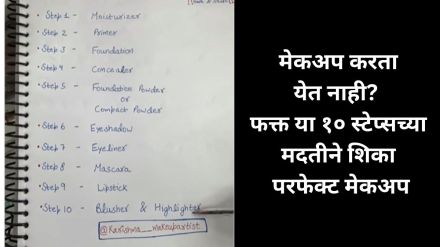 Step 1 - Moisturizer
Step 2 - Primer
Step 3 - Foundation
Step 4 - Concealer
Step 5 - Foundation Powder
or
Compact Powder
Step 6 - Eyeshadow
Step 7 - Eyeliner
Step 8 - Mascara
Step 9 - Lipstick
Step 10 - Blusher & Highlighter
@karishma__makeupartist
मेकअप करता
येत नाही?
फक्त या १० स्टेप्सच्या
मदतीने शिका
परफेक्ट मेकअप